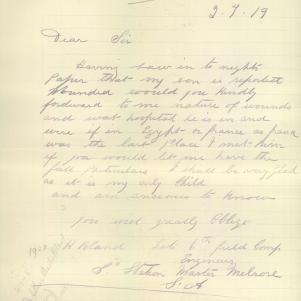 2.7.19
Dear Sir
Having saw in to nights
Paper that my son is reported
Wounded would you kindly
fordward to me nature of wounds
and wat hospital he is in and
were if in Egypt or france as
was the last place I met him
if you would let me have the
full particulars I shall be very glad
as it is my only Child
and am anxious to know
you will greatly Oblige
H 6th field Comp
Engineers
Station Master Melrose
S.A